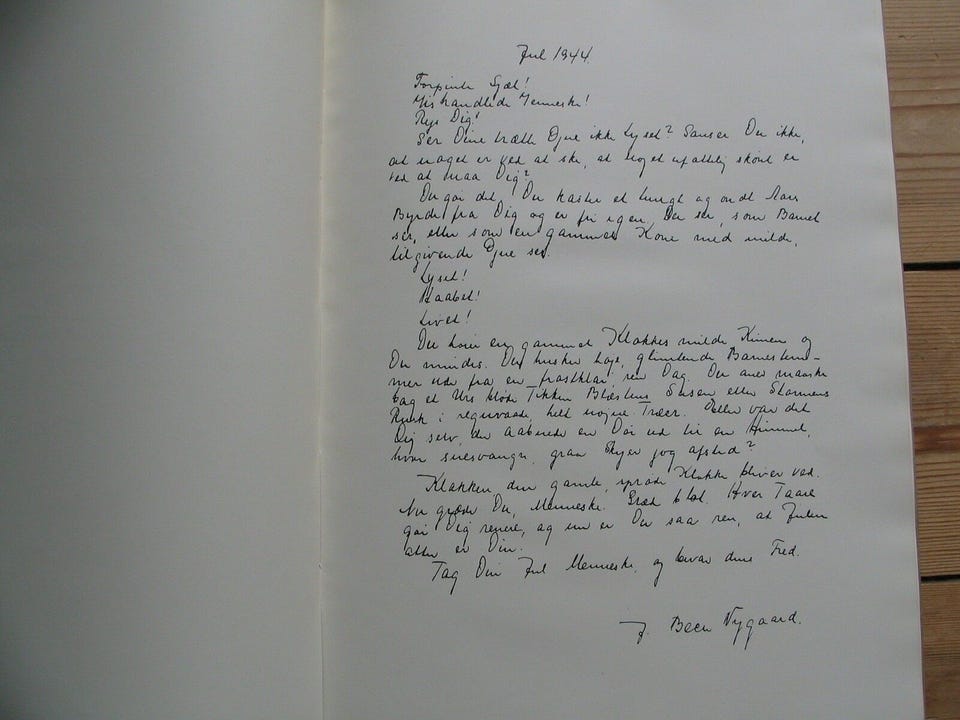 Jul 1944.
Forpinte Sjæl!
Mishandlede Menneske!
Rejs Dig!
Ser Dine trætte Øjne ikke Lyset? Sanser Du ikke,
at noget er ved at ske, at noget ufattelig skønt er
ved at naa Dig?
Du gør det! Du kaster et tungt og ondt Aars
Byrde fra Dig og er fri igen. Du ser, som Barnet
ser, eller som en gammel Kone med milde,
tilgivende Øjne ser.
Lyset!
Haabet!
Livet!
Du hører en gammel Klokkes milde Kimen og
Du mindes. Du husker høje, glimtende Barnestem-
mer ude fra en frostklar, ren Dag. Du aner maaske
bag et Urs bløde Tikken Blæstens Susen eller Stormens
i regnvaade, helt nøgne Træer. Eller var det
Dig selv, der aabnede en Dør ud til en Himmel,
hvor snesvangre, graa Skyer jog afsted?
Klokken den gamle, sprøde Klokke bliver ved.
Nu græder Du, Menneske. Græd blot. Hver Taare
gør Dig renere, og nu er Du saa ren, at Julen
atter er Din.
Tag Din Jul Menneske, og bevar dens Fred.
J. Been Nygaard.